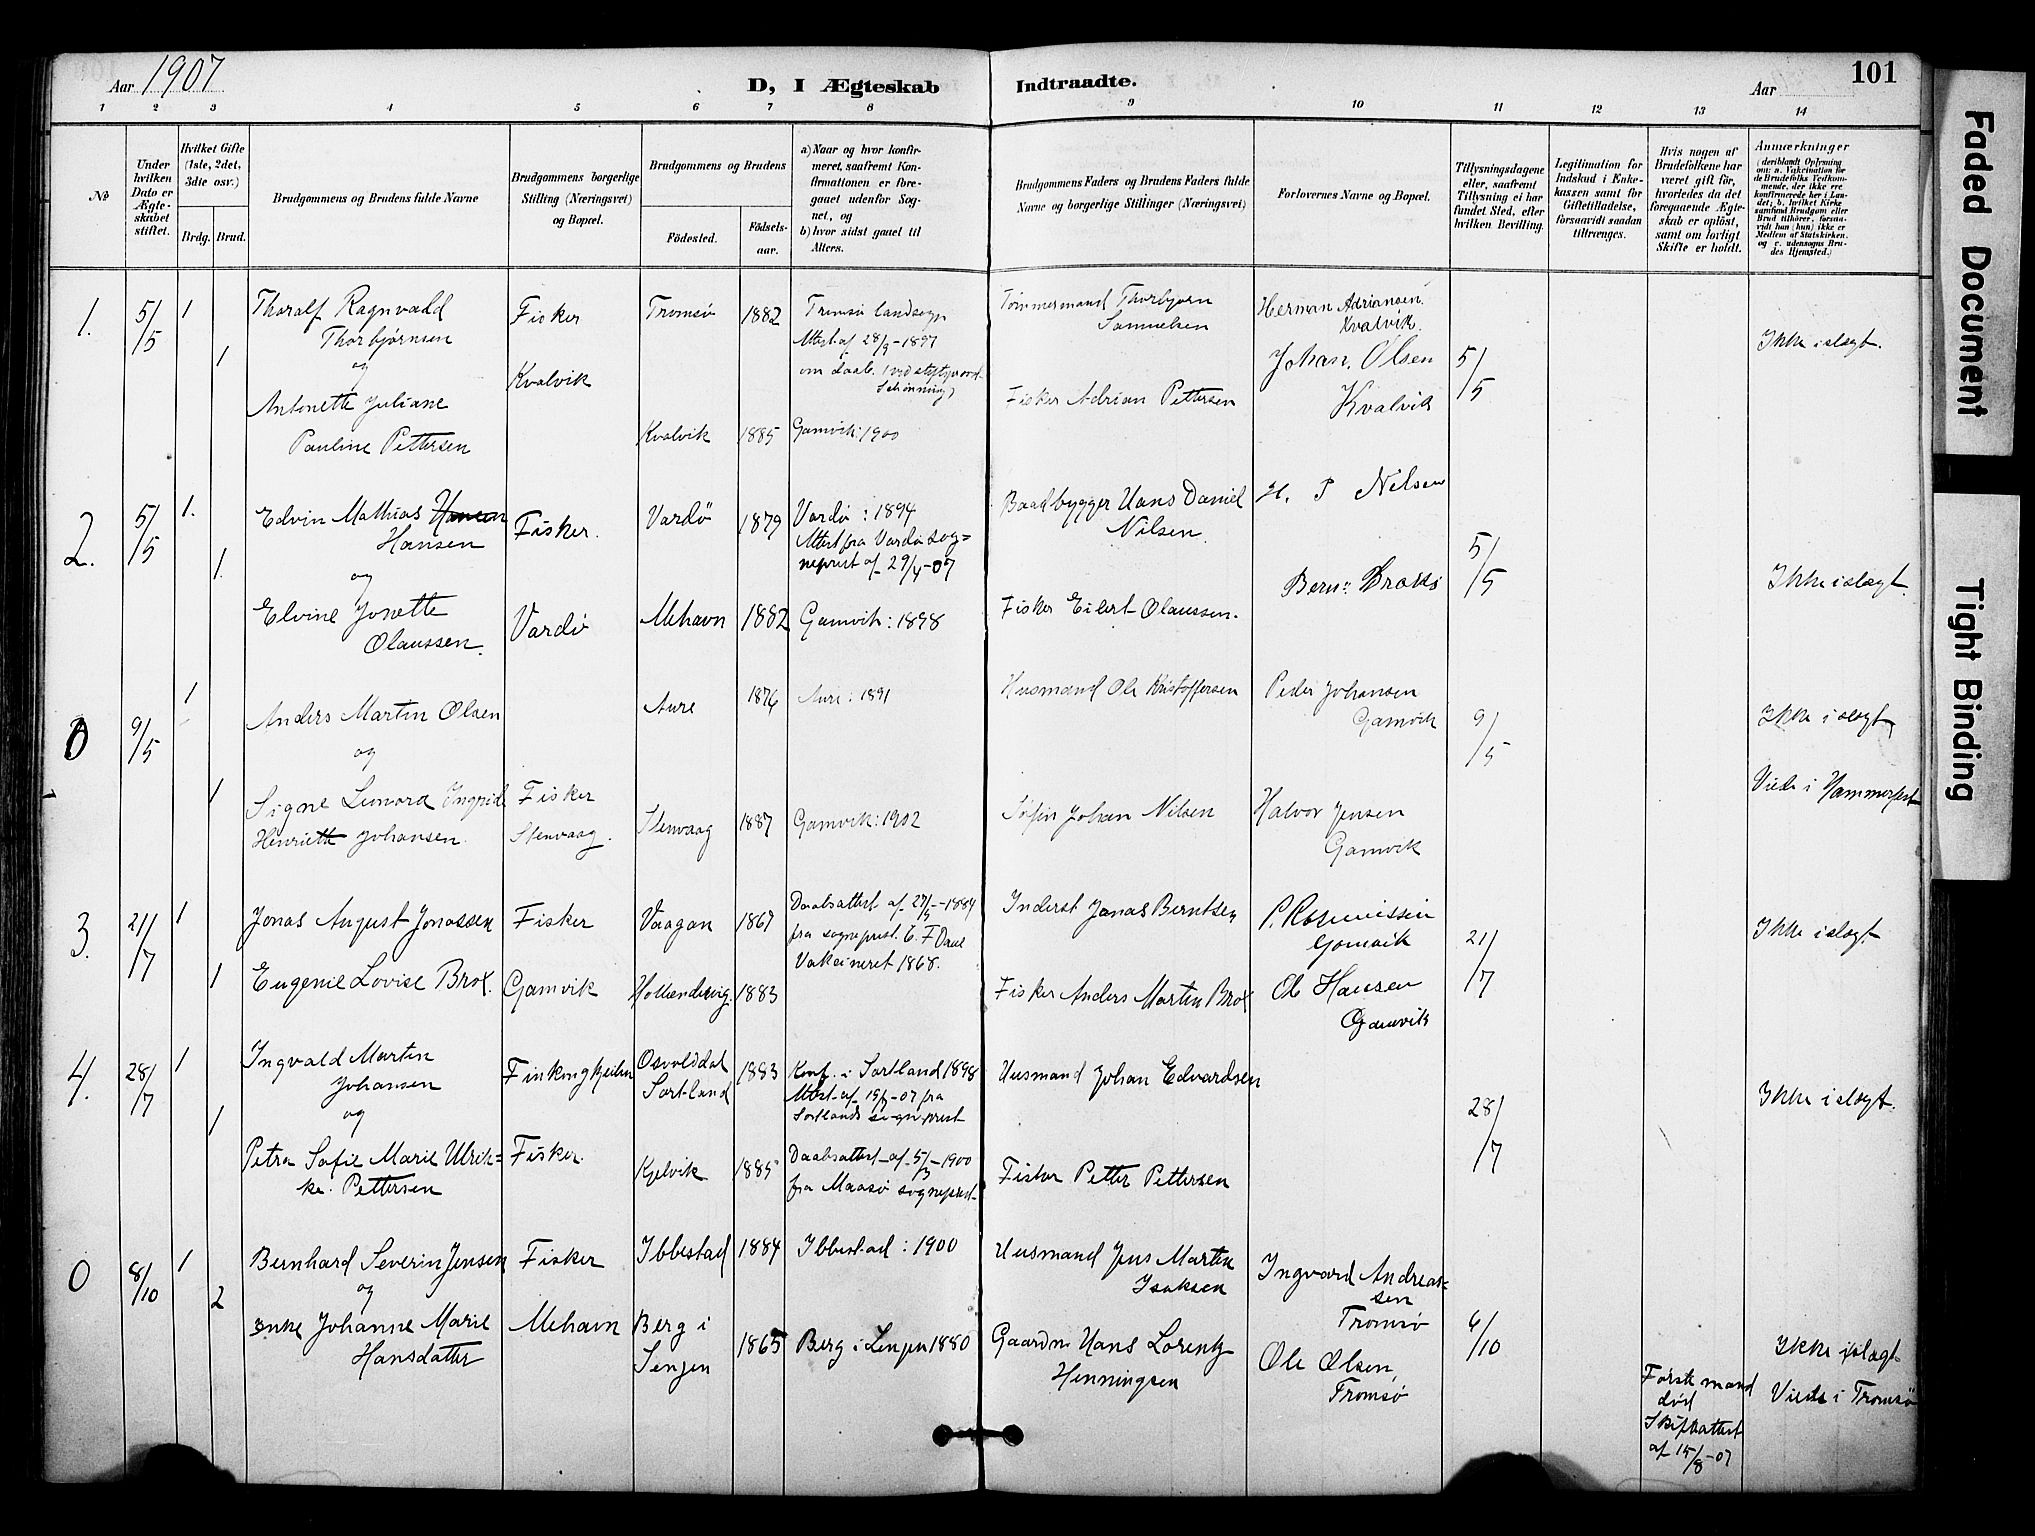 Aar 1907
D, I Ægteskab
Indtraadte.
Aar
101
1 2 3 4 5 6 7 8 9 10 11 12 13 14
No
Under hvilken Dato er Ægteskabet stiftet.
Hvilket Gifte (1ste, 2det, 3die osv.)
Brdg. Brud.
Brudgommens og Brudens fulde Navne
Brudgommens borgerlige Stilling (Næringsvei) og Bopæl.
Brudgommens og Brudens
Fødested.
Fødselsaar.
a) Naar og hvor konfirmeret, saafremt Konfirmationen er foregaaet udenfor Sognet, og
b) hvor sidst gaaet til Alters.
Brudgommens Faders og Brudens Faders fulde Navne og borgerlige Stillinger (Næringsvei)
Forlovernes Navne og Bopæl.
Tillysningsdagene eller, saafremt Tillysning ei har fundet Sted, efter hvilken Bevilling.
Legitimation for Indskud i Enkekassen samt for Giftetilladelse, forsaavidt saadan tiltrænges.
Hvis nogen af Brudefolkene har været gift før, hvorledes da det foregaaende Ægteskab er opløst, samt om lovligt Skifte er holdt.
Anmærkninger (deriblandt Oplysning om: a. Vakcination for de Brudefolks Vedkommende, der ikke ere konfirmerede her i Landet; b. hvilket Kirkesamfund Brudgom eller Brud tilhører, forsaavidt han (hun) ikke er Medlem af Statskirken. og c. udensogns Brudes Hjemsted.)
1. 5/5 1 1
Thoralf Ragnvald
Thorbjørnsen
og
Antonette Juliane
Pauline Pettersen
Fisker
Kvalvik
Tromsø 1882
Kvalvik 1885
Tromsø landsogn
Attest af 28/9-1897
om daab
Gamvik: 1900
Tømmermand Thorbjørn
Samuelsen
Fisker Adrian Pettersen
Herman Adriansen
Kvalvik.
Johan. Olsen
Kvalvik
5/5
Ikke i slegt.
2. 5/5 1. 1.
Edvin Mathias Hansen
Hansen
og
Elvine Jonette
Olaussen.
Fisker.
Vardø
Vardø 1879
Mehavn 1882
Vardø: 1894
Attest fra Vardø sog=
neprest af 29/4-07
Gamvik: 1898
Baadbygger Hans Daniel
Nilsen.
Fisker Eilert Olaussen.
H. P Nelsen
Bern:
5/5
Ikke i slegt.
0 9/5 1 1
Anders Martin Olsen
og
Signe Lenora Ingrid
Henriette Johansen.
Fisker
Stenvaag.
Aure 1876
Stenvaag 1887
Aure: 1891
Gamvik: 1902
Husmand Ole Kristoffersen
Johan Nilsen
Peder Johansen
Gamvik
Halvor Jensen
Gamvik
9/5
Ikke i slegt,
Viede i Hammerfest
3. 21/7 1 1
Jonas August Jonassen
Eugenie Lovise Brox.
Fisker
Gamvik
Vaagan 1867
Hollendervig. 1883
Daabsattest af 27/9-1884
fra sogneprest. C. F Daae
Vakcineret 1868.
Inderst Jonas Berntsen
Fisker Anders Martin Brox
P. Rasmussen
Gamvik
Ole Hansen
Gamvik
21/7
Ikke i slegt.
4. 28/7 1 1
Ingvald Martin
Johansen
og
Petra Sofie Marie Ulrik=
ke. Pettersen
Finkongkeilen
Fisker.
Osvolddal
Sortland 1883
Kjelvik 1885
Konf. i Sortland 1898
Attest af 15/7-07 fra
Sortlands sogneprest
Daabsattest af 5/3-1900
fra Maasø sogneprest
Husmand Johan Edvardsen
Fisker Petter Pettersen
28/7
Ikke i slegt.
0 8/10 1 2
Bernhard Severin Jensen
og
Enke Johanne Marie
Hansdatter
Fisker
Mehavn
Ibbestad 1884
Berg i
Senjen 1865
Ibbestad: 1900
Berg i Senjen 1880
Husmand Jens Martin
Isaksen
Gaardm Hans Lorentz
Henningsen
Ingvard Andreas-
sen
Tromsø
Ole Olsen,
Tromsø
6/10
Første mand
død
Skifteattest
af 15/8-07
Ikke i slegt
Viede i Tromsø
Faded Document
Tight Binding